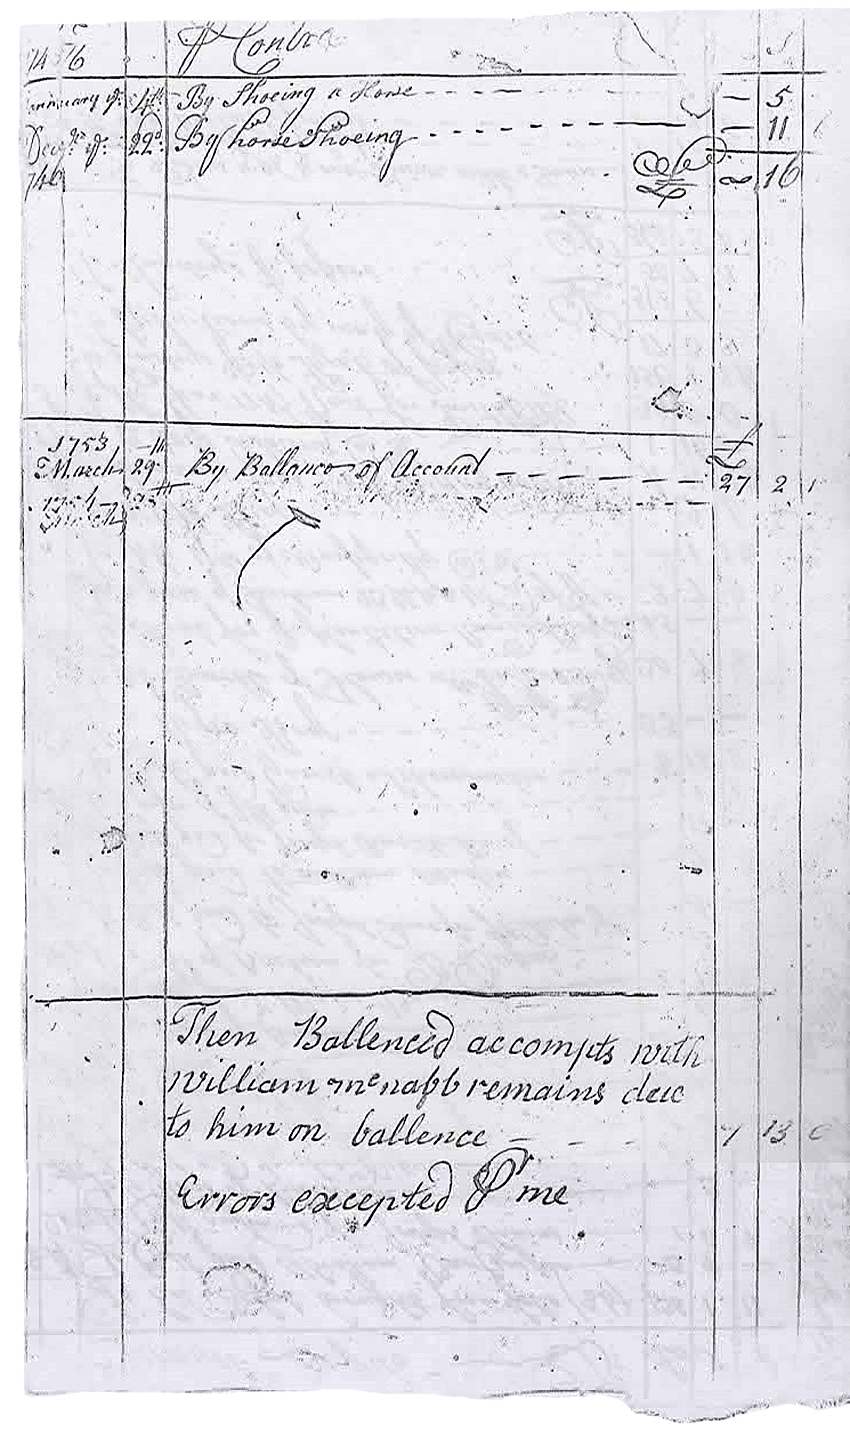 Contra
January ye 4th By Shoeing a Horse - - - - - 5
Decbr ye 22d By horse Shoeing - - - - - - 11
746 16
1753
March 29th By Ballance of Account - - - - - - 27 2 1
1754
March
Then Ballenced accompts with
william mcnabb remains due
to him on ballence - - - 7 13
Errors excepted Pr me